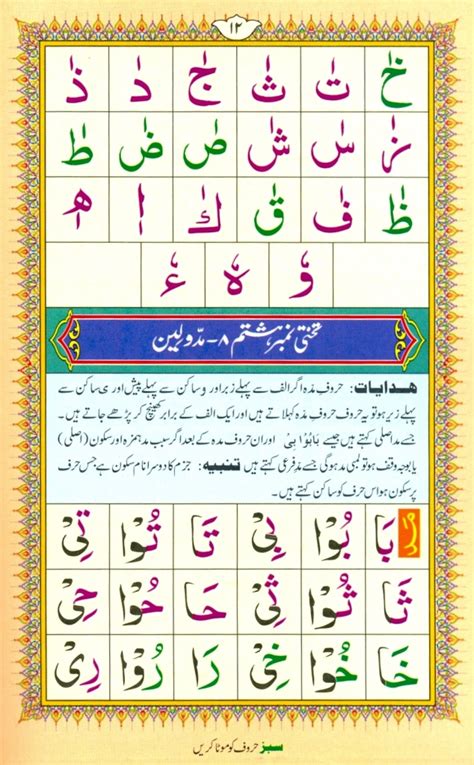 ۱۲
خٰ تٰ ثٰ جٰ دٰ ذٰ
زٰ سٰ شٰ صٰ ضٰ طٰ
ظٰ فٰ قٰ كٰ اٖ هٖ
وٗ هٗ ءٗ
تختی نمبر ہشتم ۸- مدّولین
ھدایات: حروف مدہ اگر الف سے پہلے زبر اور و ساکن سے پہلے پیش اور ی ساکن سے
پہلے زیر ہو تو یہ حروف مدہ کہلاتے ہیں اور ایک الف کے برابر کھینچ کر پڑھے جاتے ہیں۔
جسے مد اصلی کہتے ہیں جیسے بَابُوْا بِىْ اور ان حروف مدہ کے بعد اگر سبب مد ہمزہ اور سکون (اصلی)
یا بوجہ وقف ہو تو لمبی مد ہوگی جسے مد فرعی کہتے ہیں۔ تنبیہ: جزم کا دوسرا نام سکون ہے جس حرف
پر سکون ہو اس حرف کو ساکن کہتے ہیں۔
بَا بُوْا بِىْ تَا تُوْا تِىْ
ثَا ثُوْا ثِىْ حَا حُوْا حِىْ
خَا خُوْا خِىْ رَا رُوْا رِىْ
سبز حروف کو موٹا کریں